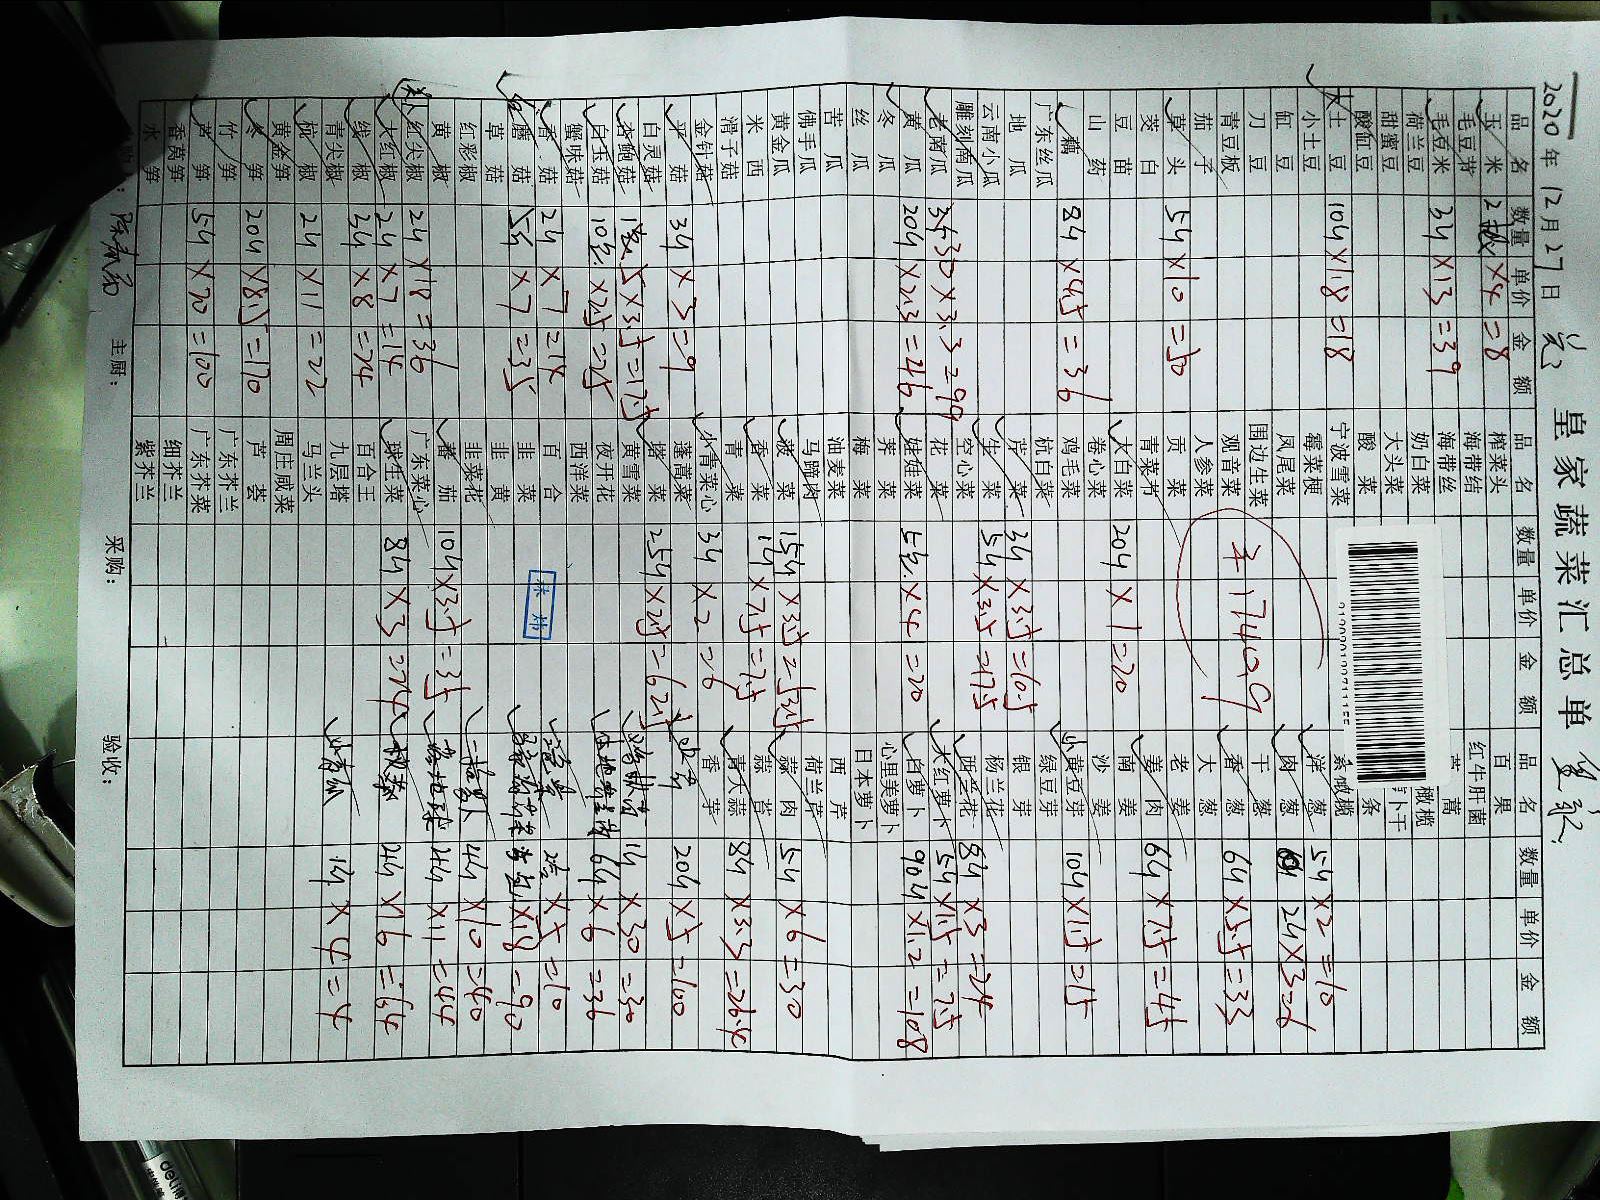 皇家蔬菜汇总单
2020年12月27日
品名 数量 单价 金额 品名 数量 单价 金额 品名 数量 单价 金额
玉米 ×4=8 榨菜头 百果
毛豆芽 海带结 红牛肝菌
毛豆米 3斤×13=39 海带丝
荷兰豆 奶白菜 橄榄
甜蜜豆 大头菜
酸豇豆 酸菜 条
土豆 10斤×1.8=18 宁波雪菜 系橄榄
小土豆 霉菜梗 洋葱 5斤×2=10
豇豆 凤尾菜 肉葱 2斤×3=6
刀豆 围边生菜 干葱
青豆板 观音菜 香葱 6斤×5.5=33
茄子 人参菜 大葱
草头 5斤×10=50 贡菜 老姜
茭白 青菜秧 姜肉 6斤×7.5=45
豆苗 大白菜 20斤×1=20 南姜
山药 卷心菜 沙姜
藕 8斤×4.5=36 鸡毛菜 黄豆芽 10斤×1.5=15
广东丝瓜 杭白菜 绿豆芽
地瓜 芹菜 3斤×3.5=10.5 银芽
云南小瓜 生菜 5斤×3.5=17.5 杨兰花
雕刻南瓜 空心菜 西兰花 8斤×3=24
老南瓜 30×3.3=99 花菜 大红萝卜 5斤×1.5=7.5
黄瓜 20斤×2.3=46 娃娃菜 5斤×4=20 白萝卜 90斤×1.2=108
冬瓜 荠菜 心里美萝卜
丝瓜 梅菜 日本萝卜
苦瓜 油麦菜 西芹
佛手瓜 马蹄肉 荷兰芹
黄金瓜 菠菜 15斤×3.5=52.5 蒜肉 5斤×6=30
米西 香菜 1斤×7.5=7.5 蒜苔
滑子菇 青菜 青大蒜 8斤×3.3=26.4
金针菇 小青菜心 3斤×2=6 香芋
平菇 3斤×3=9 蓬蒿菜 20斤×5=100
白灵菇 塔菜 25斤×2.5=62.5
杏鲍菇 5×3.5=17.5 黄雪菜 1斤×30=30
白玉菇 10×2.5=25 夜开花 6斤×6=36
蟹味菇 西洋菜
香菇 2斤×7=14 百合 ×5=10
蘑菇 5斤×7=35 韭菜 ×18=90
草菇 韭黄
红彩椒 韭菜花 4斤×10=40
黄椒 番茄 10斤×3.5=35 4斤×11=44
红尖椒 2斤×18=36 广东菜心
大红椒 2斤×7=14 球生菜 8斤×3=24 4斤×16=64
线椒 3斤×8=24 百合王
青尖椒 九层塔 1斤×4=4
杭椒 2斤×11=22 马兰头
黄金笋 周庄咸菜
冬笋 20斤×8.5=170 芦荟
竹笋 广东芥兰
芦笋 5斤×20=100 广东芥菜
香莴笋 细芥兰
水笋 紫芥兰
¥1740.9
主厨： 采购： 验收：